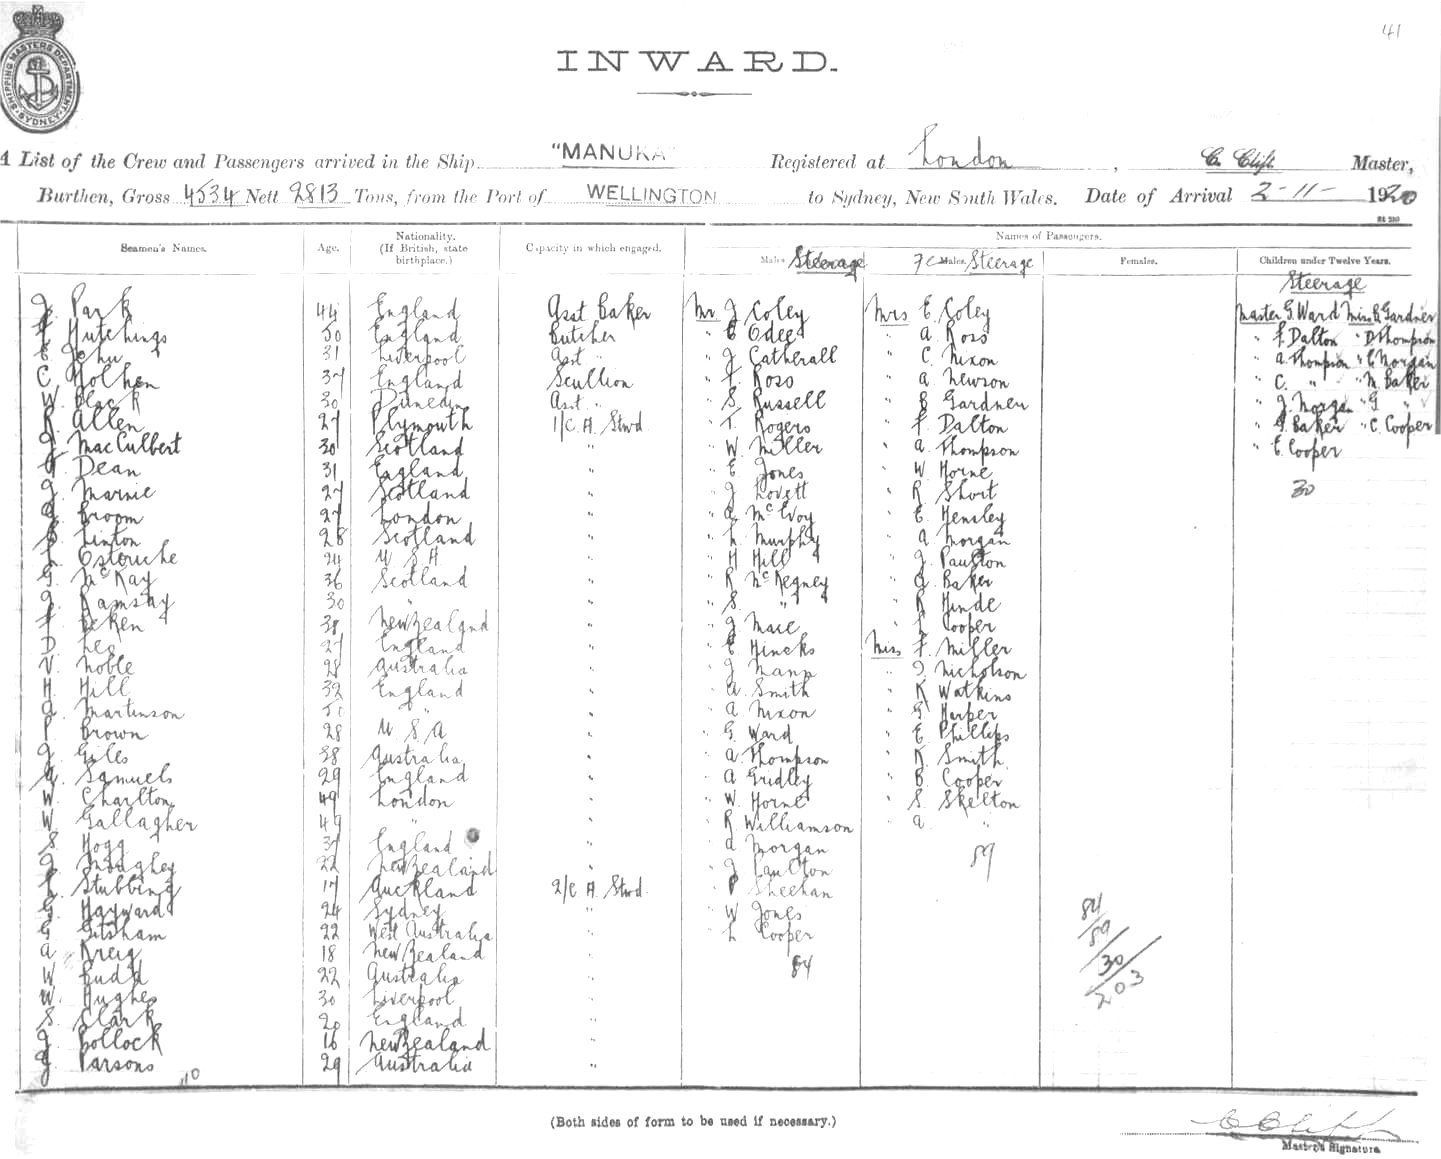 41
SHIPPING MASTERS DEPARTMENT
SYDNEY
INWARD.
A List of the Crew and Passengers arrived in the Ship "MANUKA" Registered at London, C. Clift Master,
Burthen, Gross 4534 Nett 2813 Tons, from the Port of WELLINGTON to Sydney, New South Wales. Date of Arrival 2-11-1920
Names of Passengers.
Seamen's Names. Age. Nationality. (If British, state birthplace.) Capacity in which engaged. Males Steerage FeMales. Steerage Females. Children under Twelve Years.
Steerage
J. Park 44 England Asst Baker Mr J Coley Mrs E. Coley Master G. Ward Miss B Gardner
F Hutchings 50 England Butcher " E Odee " A Ross " F Dalton " D Thompson
E Jehu 31 Liverpool Asst " " J Catherall " C. Nixon " A Thompson " C Morgan
C. Holhen 37 England Scullion " F. Ross " A Newson " C. " " M. Baker
W. Black 30 Dunedin Asst " " S. Russell " B Gardner " J. Morgan " G "
R. Allen 27 Plymouth 1/C A. Stwd " T. Rogers " F Dalton " F. Baker " C. Cooper
J. MacCulbert 30 Scotland " " W. Miller " A Thompson " E Cooper
F Dean 31 England " " E Jones " W Horne
J. Marnie 27 Scotland " " J Lovett " R Short 30
A Broom 27 London " " A McEvoy " E Hensley
B Linton 28 Scotland " " L Murphy " A Morgan
L Estouche 24 U S A " " H Hill " J. Paulton
G. McKay 36 Scotland " " R McKegney " A Baker
J. Ramsay 30 " " " S. " " R Hinde
F Beken 38 New Zealand " " J Mace " L Cooper
D. Lee 27 England " " E Hincks Miss F. Miller
V. Noble 28 Australia " " J Mann " I Nicholson
H Hill 32 England " " A. Smith " K Watkins
A. Martinson 50 " " " A Nixon " G Harper
P Brown 28 U S A " " G Ward " E Phillips
J Giles 38 Australia " " A Thompson " K. Smith
A Samuels 29 England " " A Gridley " B Cooper
W. Charlton 49 London " " W. Horne " S. Skelton
W Gallagher 49 " " " R Williamson " A "
S. Hogg 37 England " " A Morgan
J Moughey 22 New Zealand " " J Paulton 59
L Stubbing 17 Auckland 2/C A. Stwd. " P Sheehan
G. Hayward 24 Sydney " " W Jones 84
G Gitsham 22 West Australia " " L Cooper 59
A Kreig 18 New Zealand " 84 30
W Budd 22 Australia " 203
W. Hughes 30 Liverpool "
S. Clark 20 England "
J Bollock 16 New Zealand "
J Parsons 29 Australia "
110
(Both sides of form to be used if necessary.) C Clift
Master's Signature